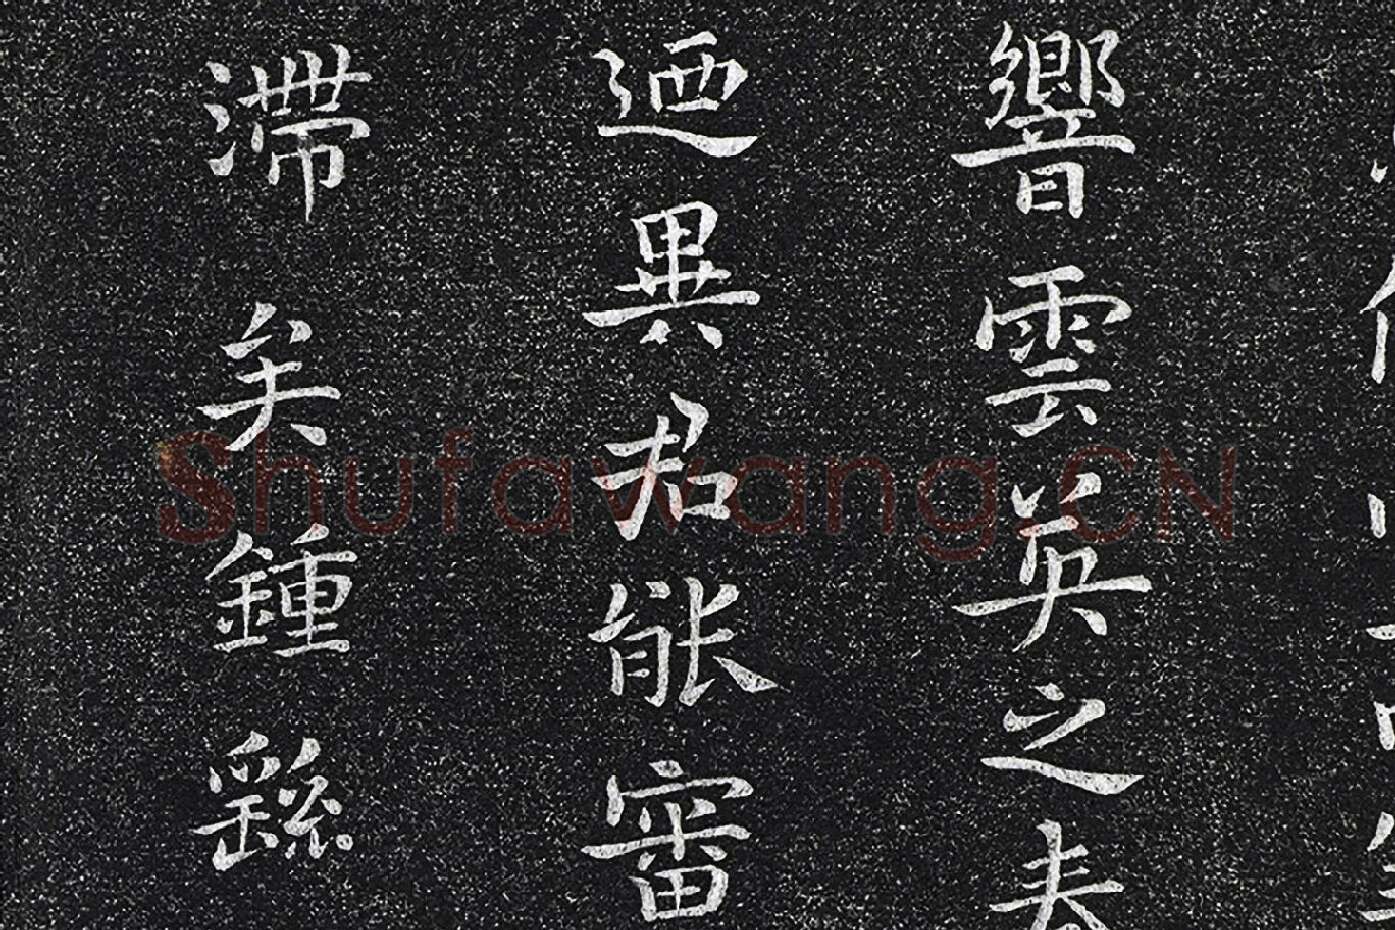 響雲英之
迺異君能審
滯矣鍾繇
Shufawang.CN